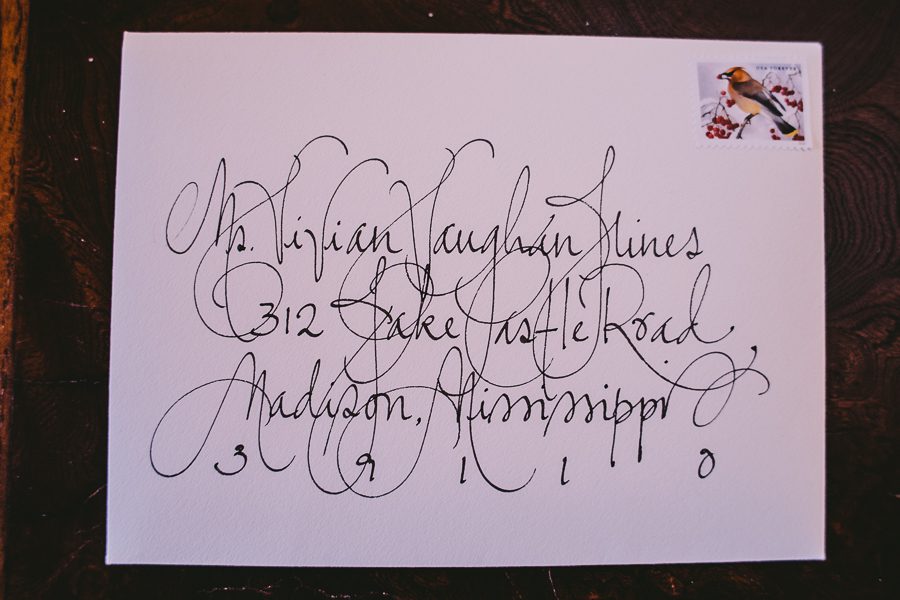 USA FOREVER
Ms. Vivian Vaughan Hines
312 Lake Castle Road
Madison, Mississippi
39110